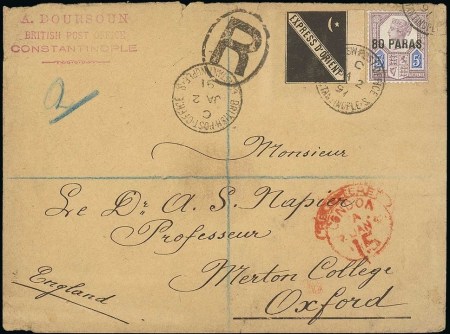 A. BOURSOUN
BRITISH POST OFFICE
CONSTANTINOPLE
R
EXPRESS D'ORIENT
80 PARAS
BRITISH POST OFFICE
CONSTANTINOPLE-S.
C
JA 2
91
BRITISH POST OFFICE
C
JA 2
91
2
Monsieur
Le Dr A. S. Napier
Professeur
Merton College
Oxford
England
REGISTERED
LONDON
A
JAN